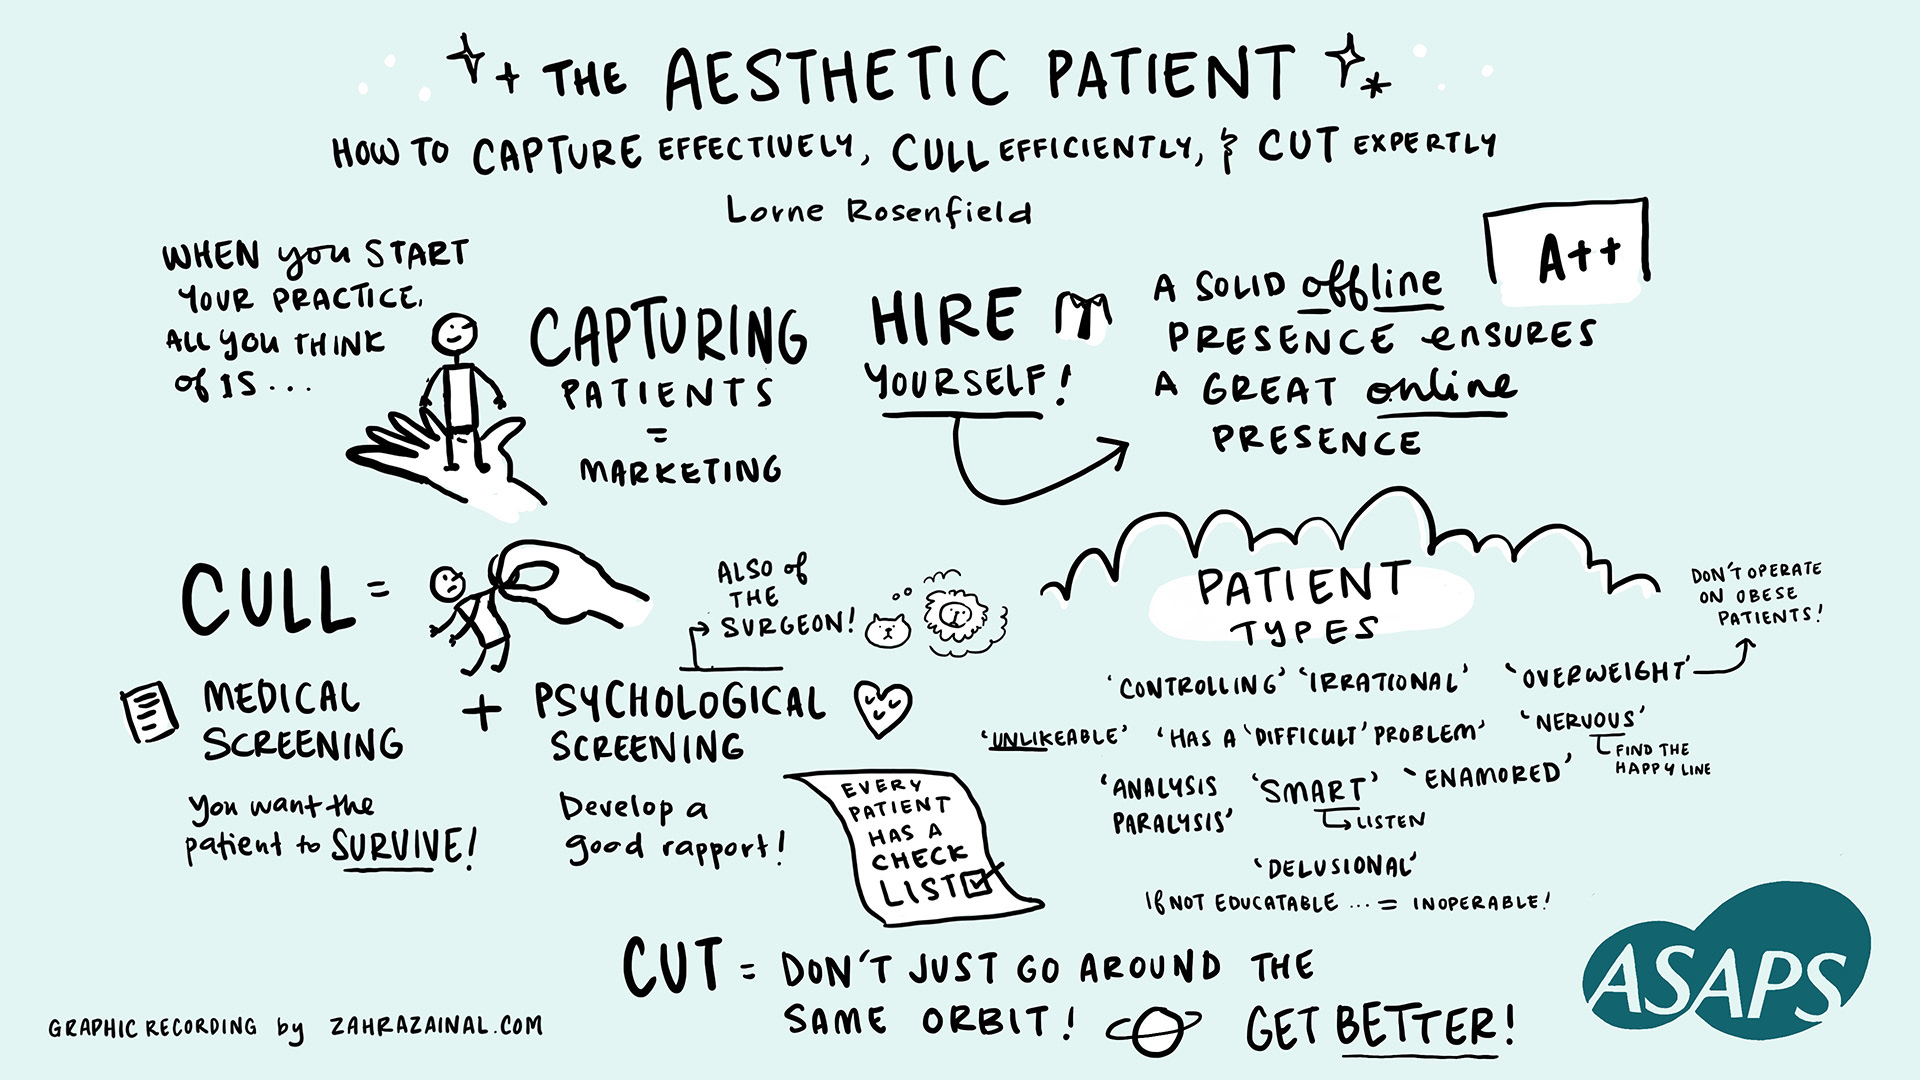 THE AESTHETIC PATIENT
HOW TO CAPTURE EFFECTIVELY, CULL EFFICIENTLY, & CUT EXPERTLY
Lorne Rosenfield
WHEN you START
YOUR PRACTICE,
ALL you THINK
of IS...
CAPTURING
PATIENTS
=
MARKETING
HIRE
YOURSELF!
A SOLID offline
PRESENCE ENSURES
A GREAT online
PRESENCE
A++
CULL =
ALSO of
THE
SURGEON!
MEDICAL
SCREENING
+
PSYCHOLOGICAL
SCREENING
You want the
patient to SURVIVE!
Develop a
good rapport!
EVERY
PATIENT
HAS A
CHECK
LIST
PATIENT
TYPES
DON'T OPERATE
ON OBESE
PATIENTS!
'CONTROLLING' 'IRRATIONAL' 'OVERWEIGHT'
'UNLIKEABLE' 'HAS A 'DIFFICULT' PROBLEM' 'NERVOUS'
FIND THE
HAPPY LINE
'ANALYSIS
PARALYSIS'
'SMART' 'ENAMORED'
LISTEN
'DELUSIONAL'
If NOT EDUCATABLE ... = INOPERABLE!
CUT = DON'T JUST GO AROUND THE
SAME ORBIT! GET BETTER!
GRAPHIC RECORDING by ZAHRAZAINAL.COM
ASAPS